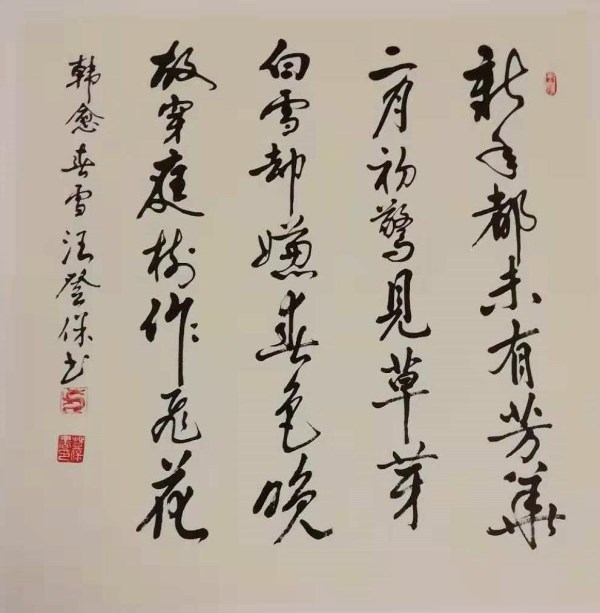 新年都未有芳华
二月初驚見草芽
白雪却嫌春色晚
故穿庭树作飞花
韩愈春雪汪登保书